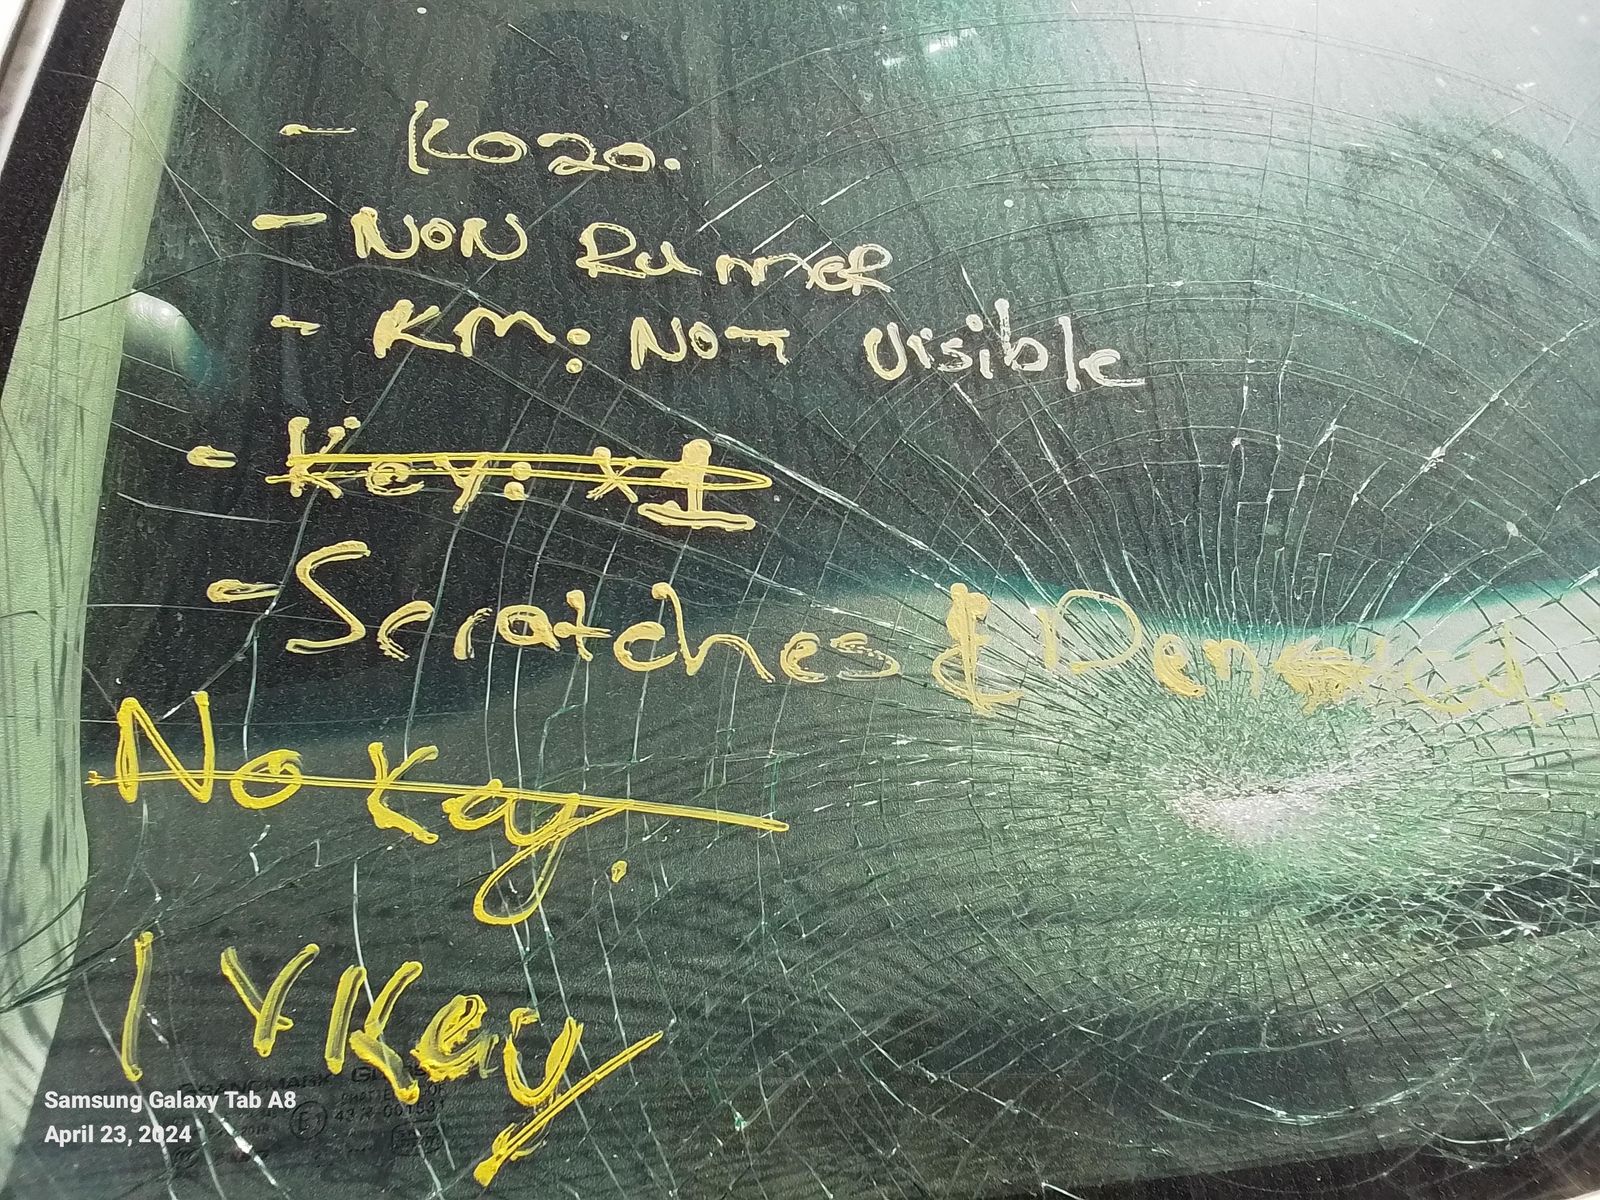 - K020.
- NON RunneR
- KM: NOT Visible
- Key: x1
- Scratches &
No Key.
1 x Key
Samsung Galaxy Tab A8
April 23, 2024